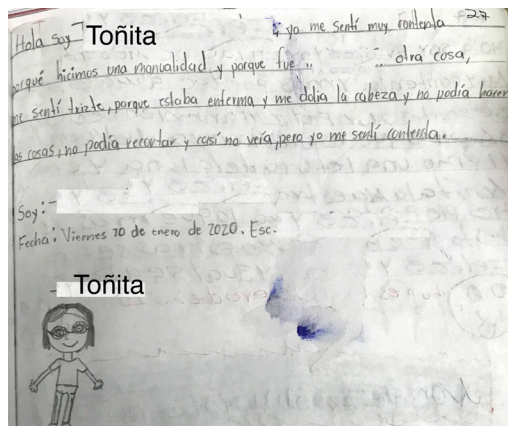 27
Hola Soy Toñita y yo me sentí muy contenta
porqué hicimos una manualidad y porque fue .. otra cosa,
me sentí trizte, porque estaba enferma y me dolia la cabeza y no podía hacer
las cosas, no podía recortar y casí no veía, pero yo me sentí contenta.
Soy:
Fecha: Viernes 10 de enero de 2020. Esc.
Toñita